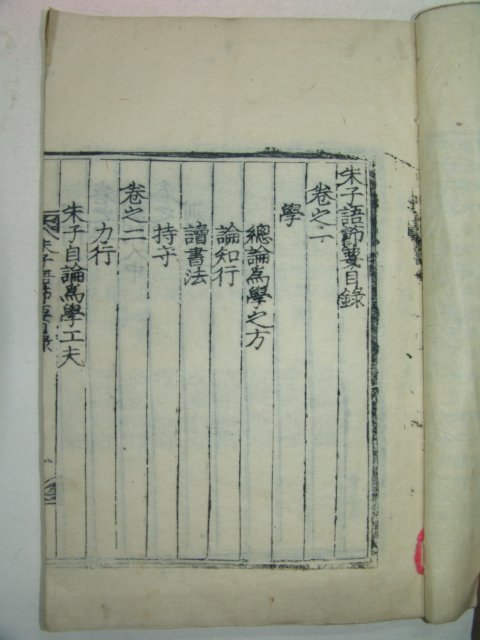 朱子語節要目錄
卷之一
學
總論爲學之方
論知行
讀書法
持守
卷之二
力行
朱子自論爲學工夫
朱子語節要目錄